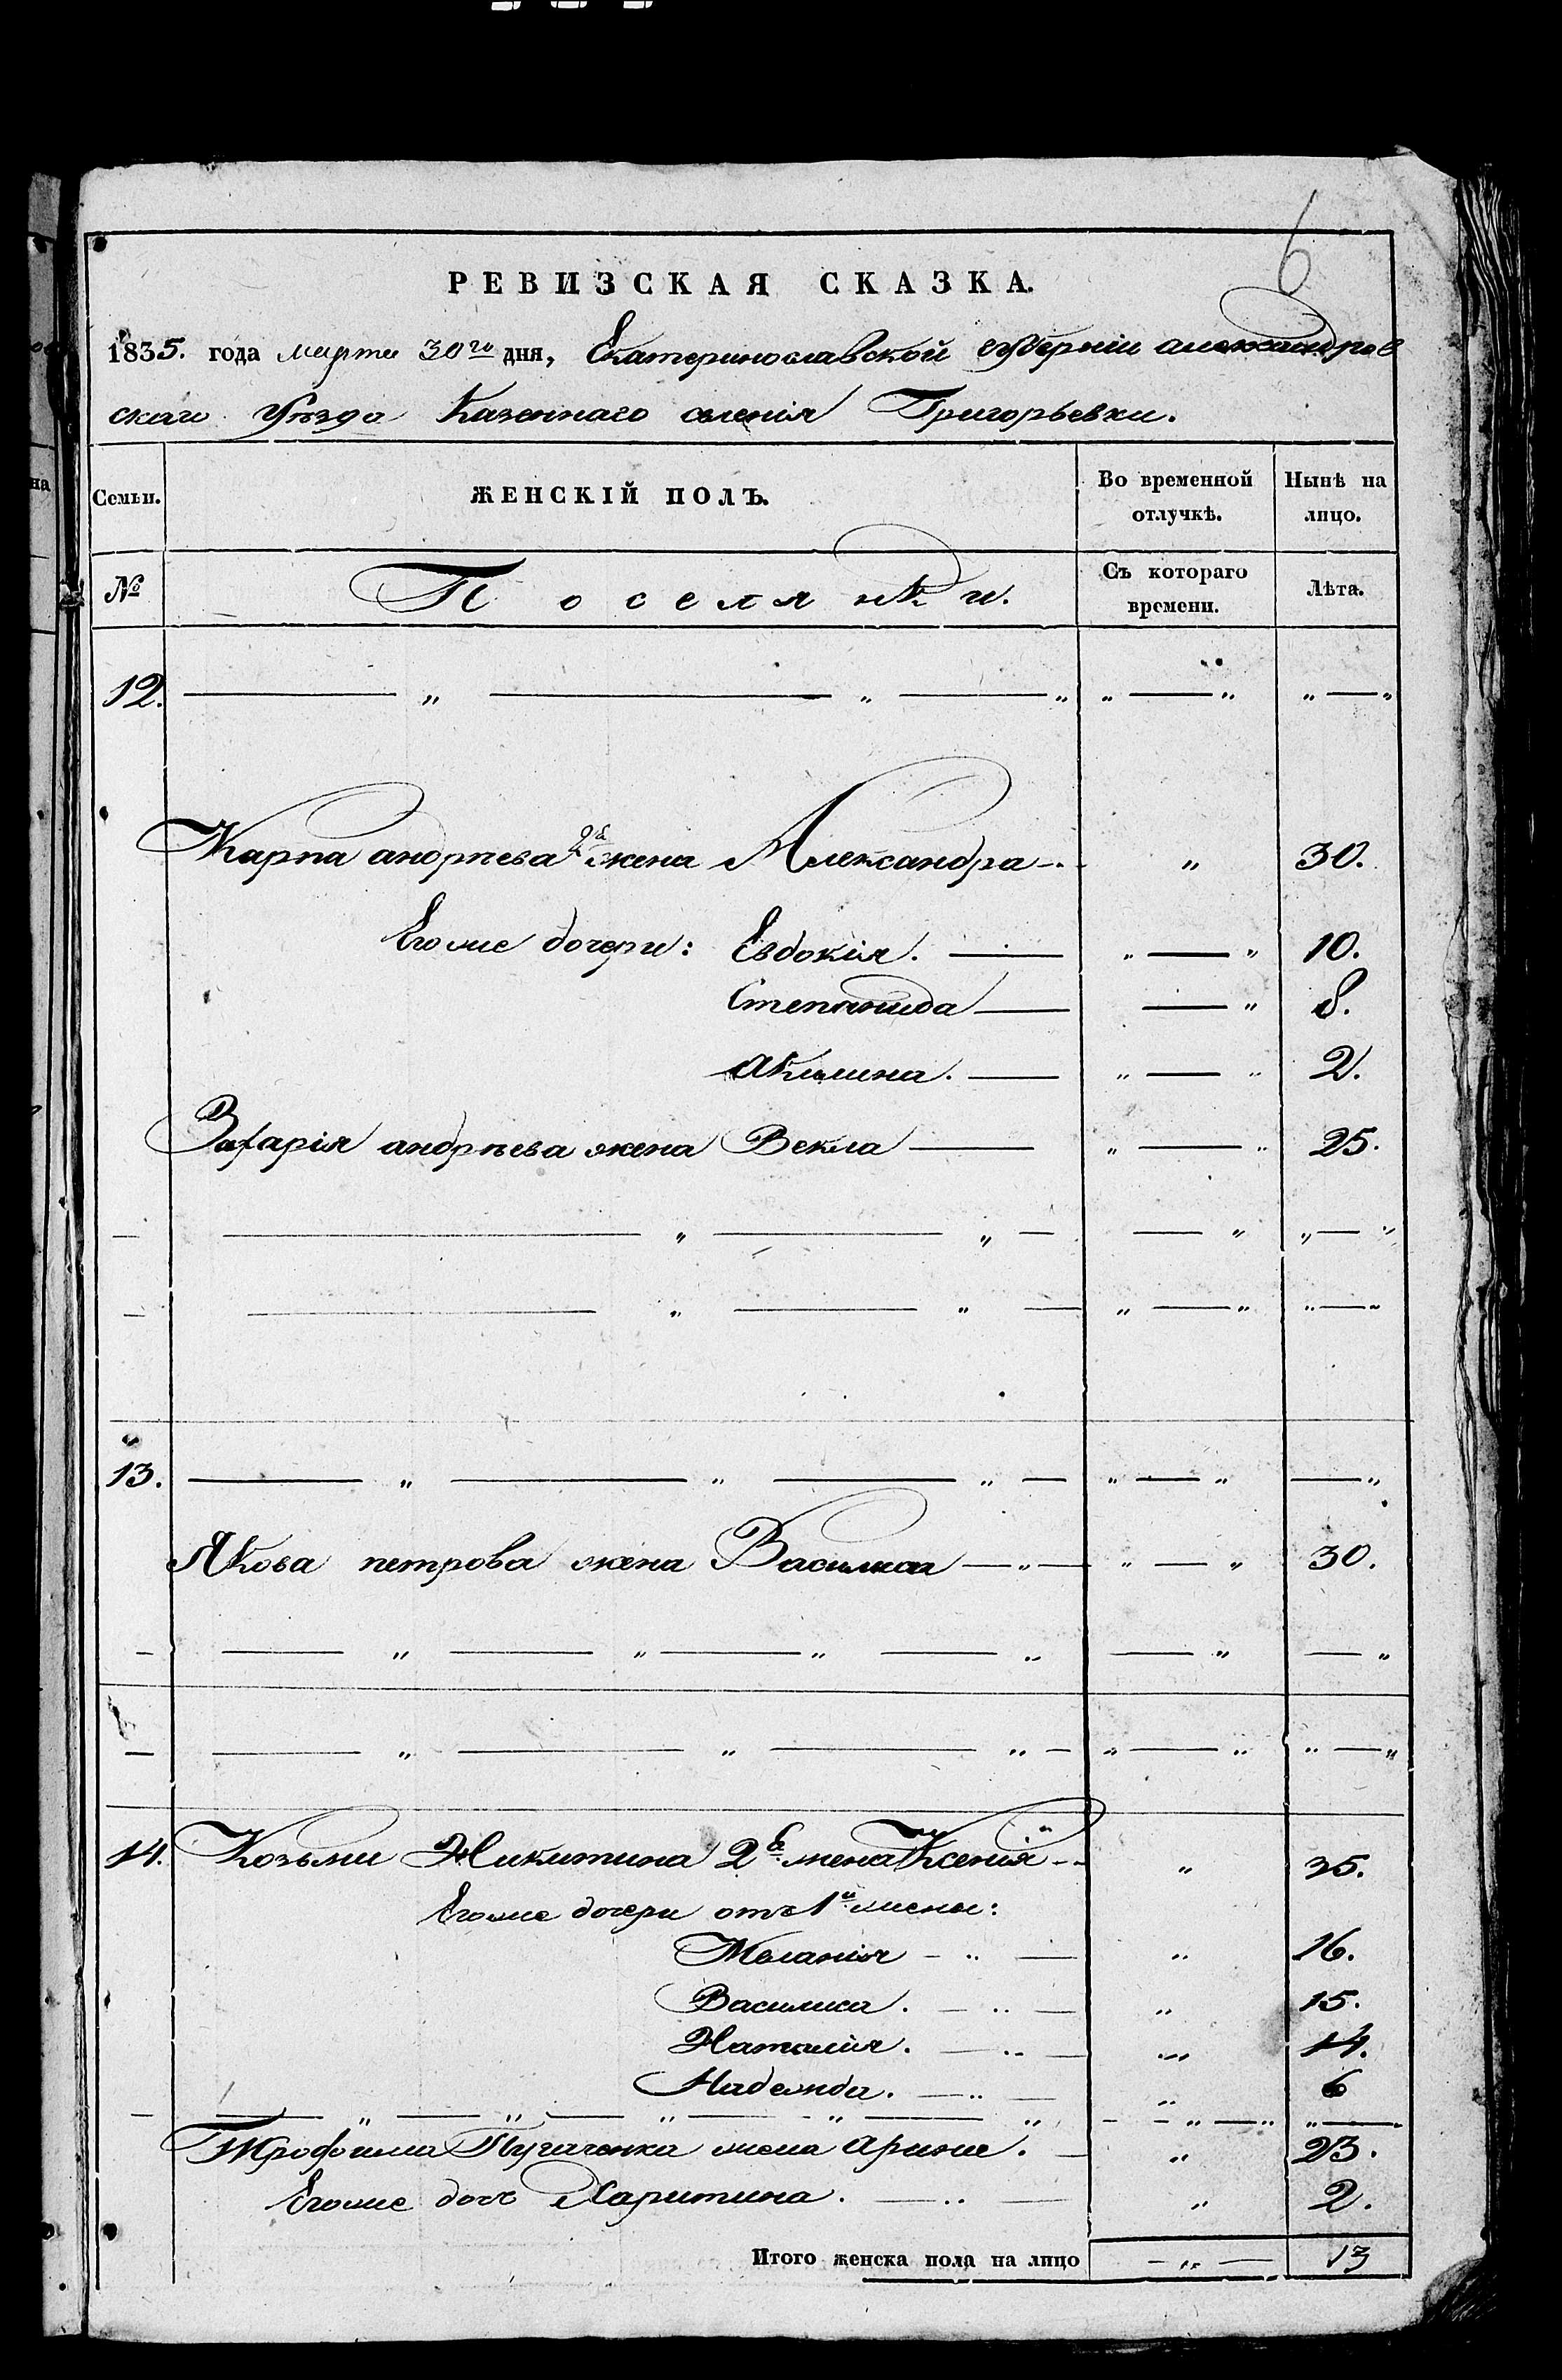 6
РЕВИЗСКАЯ СКАЗКА.
1835. года марта 30го дня, Екатеринославской губерніи александров
скаго уѣзда Казеннаго селенія Григорьевки.
Семьи. ЖЕНСКІЙ ПОЛЪ. Во временной отлучкѣ. Нынѣ на лицо.
№ Поселянки. Съ котораго времени. Лѣта.
12. — „ — „ — „ „ — „ „ — „
Карпа андрѣева 2я жена Александра — „ 30.
Его же дочери: Евдокія. — „ — „ 10.
Степанида — — „ 8.
Акилина. — „ — „ 2.
Захарія андрѣева жена Векла — „ — „ 25.
— — „ — „ — — „ „ — „
— — „ — „ — „ — „ „ — „
13. — „ — „ — „ — „ — „ — „
Якова петрова жена Василиса — „ — „ — „ 30.
— — „ — „ — „ — „ — „ — „
— — „ — „ — „ — „ — „ „ — „
14. Козьмы Никитина 2я жена Ксенія - - „ 35.
Его же дочери отъ 1й жены:
Меланія - „ — „ 16.
Василиса. — „ — „ 15.
Наталія. — „ — „ 14.
Надежда. — „ — „ 6
— — „ — „ — „ — „ — „ - - „ — „ „ —
Трофима Пугаченка жена Арина. — „ 23.
Его же дочь Харитина. — „ — „ 2.
Итого женска пола на лицо — „ — 13